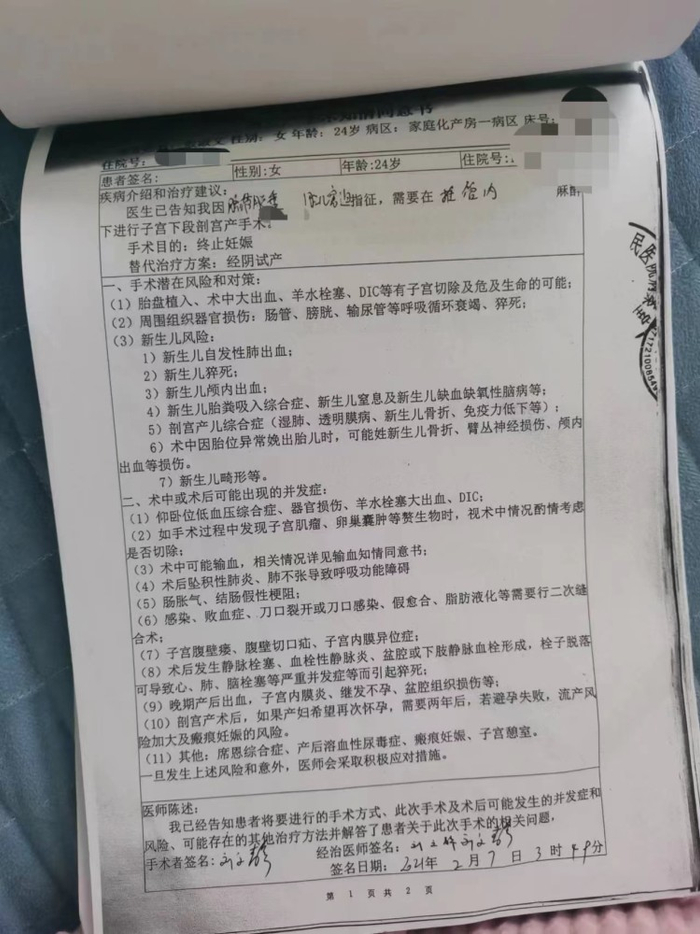 性别： 女 年龄： 24岁 病区： 家庭化产房一病区 床号：
住院号：
患者签名： 性别:女 年龄:24岁 住院号:
疾病介绍和治疗建议：
医生已告知我因 指征，需要在 椎管内 麻醉
下进行子宫下段剖宫产手术。
手术目的：终止妊娠
替代治疗方案：经阴试产
一、手术潜在风险和对策：
（1）胎盘植入、术中大出血、羊水栓塞、DIC等有子宫切除及危及生命的可能；
（2）周围组织器官损伤：肠管、膀胱、输尿管等呼吸循环衰竭、猝死；
（3）新生儿风险：
1）新生儿自发性肺出血；
2）新生儿猝死；
3）新生儿颅内出血；
4）新生儿胎粪吸入综合症、新生儿窒息及新生儿缺血缺氧性脑病等；
5）剖宫产儿综合症（湿肺、透明膜病、新生儿骨折、免疫力低下等）；
6）术中因胎位异常娩出胎儿时，可能姓新生儿骨折、臂丛神经损伤、颅内
出血等损伤。
7）新生儿畸形等。
二、术中或术后可能出现的并发症：
（1）仰卧位低血压综合症、器官损伤、羊水栓塞大出血、DIC；
（2）如手术过程中发现子宫肌瘤、卵巢囊肿等赘生物时，视术中情况酌情考虑
是否切除；
（3）术中可能输血，相关情况详见输血知情同意书；
（4）术后坠积性肺炎、肺不张导致呼吸功能障碍
（5）肠胀气、结肠假性梗阻；
（6）感染、败血症、刀口裂开或刀口感染、假愈合、脂肪液化等需要行二次缝
合术；
（7）子宫腹壁瘘、腹壁切口疝、子宫内膜异位症；
（8）术后发生静脉栓塞、血栓性静脉炎、盆腔或下肢静脉血栓形成，栓子脱落
可导致心、肺、脑栓塞等严重并发症等而引起猝死；
（9）晚期产后出血，子宫内膜炎、继发不孕、盆腔组织损伤等；
（10）剖宫产术后，如果产妇希望再次怀孕，需要两年后，若避孕失败，流产风
险加大及瘢痕妊娠的风险。
（11）其他：席恩综合症、产后溶血性尿毒症、瘢痕妊娠、子宫憩室。
一旦发生上述风险和意外，医师会采取积极应对措施。
医师陈述：
我已经告知患者将要进行的手术方式、此次手术及术后可能发生的并发症和
风险、可能存在的其他治疗方法并解答了患者关于此次手术的相关问题，
手术者签名： 经治医师签名：
签名日期： 2021年 2月 7日 3时 49分
第 1 页 共 2 页